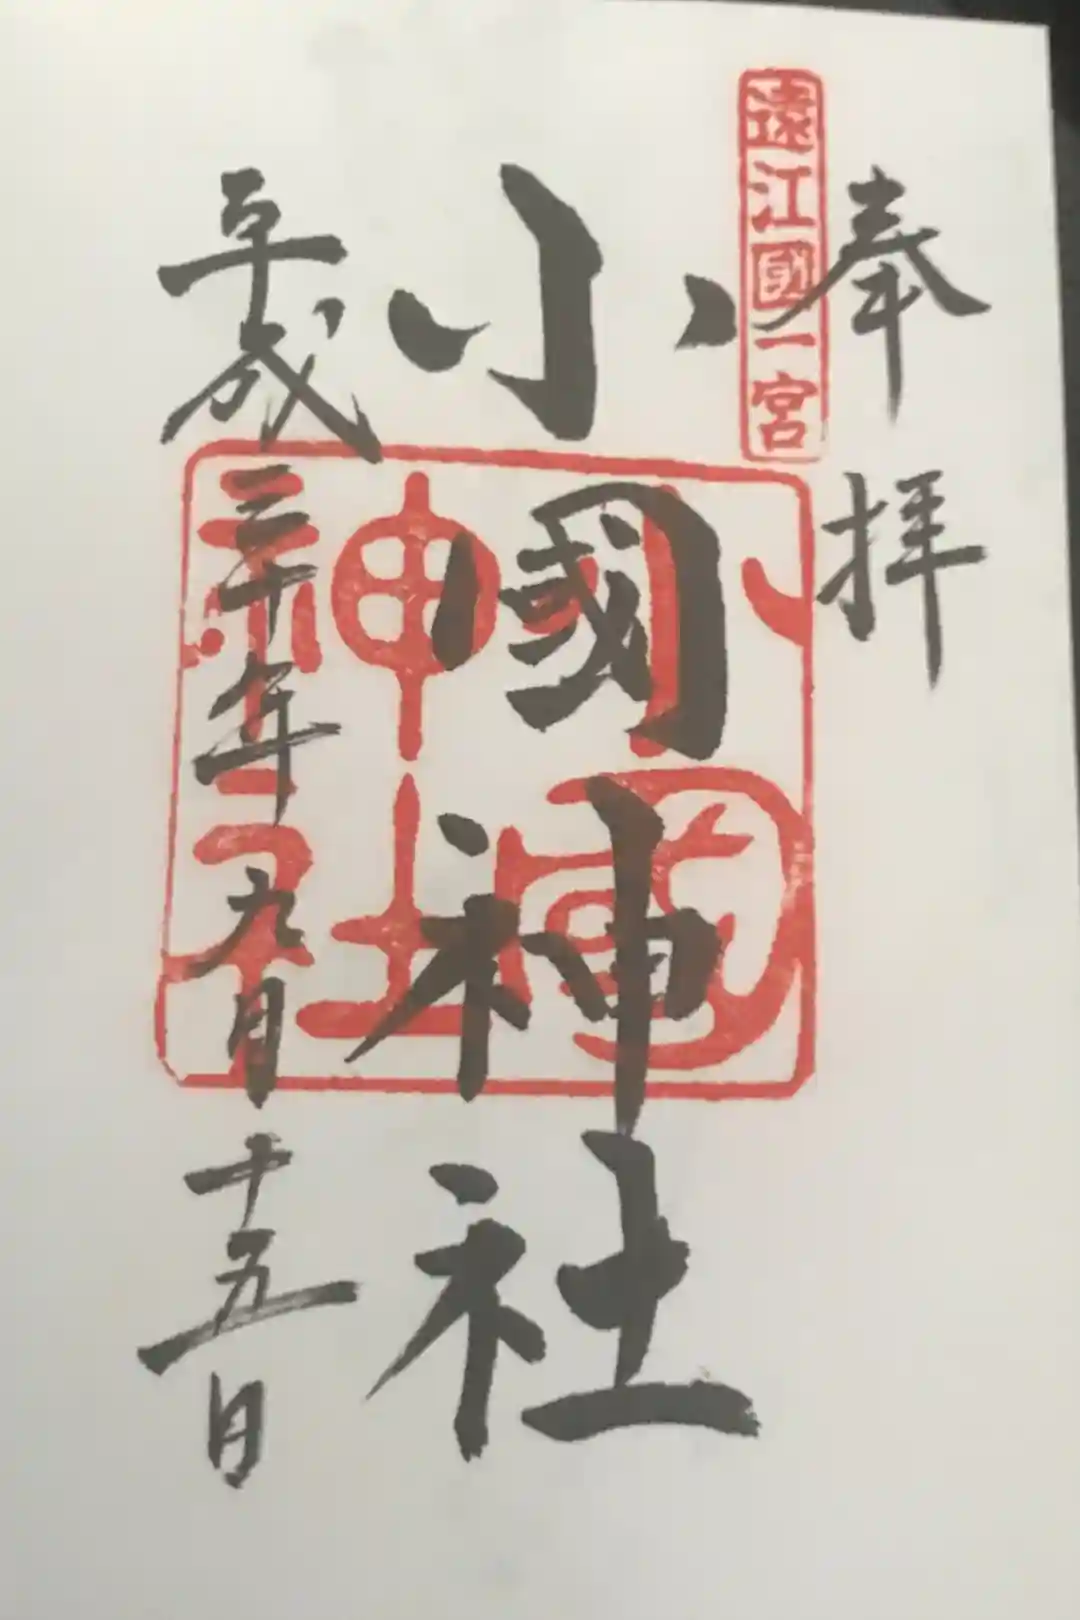 奉拝
遠江國一宮
小國神社
小國神社
平成三十年九月十五日